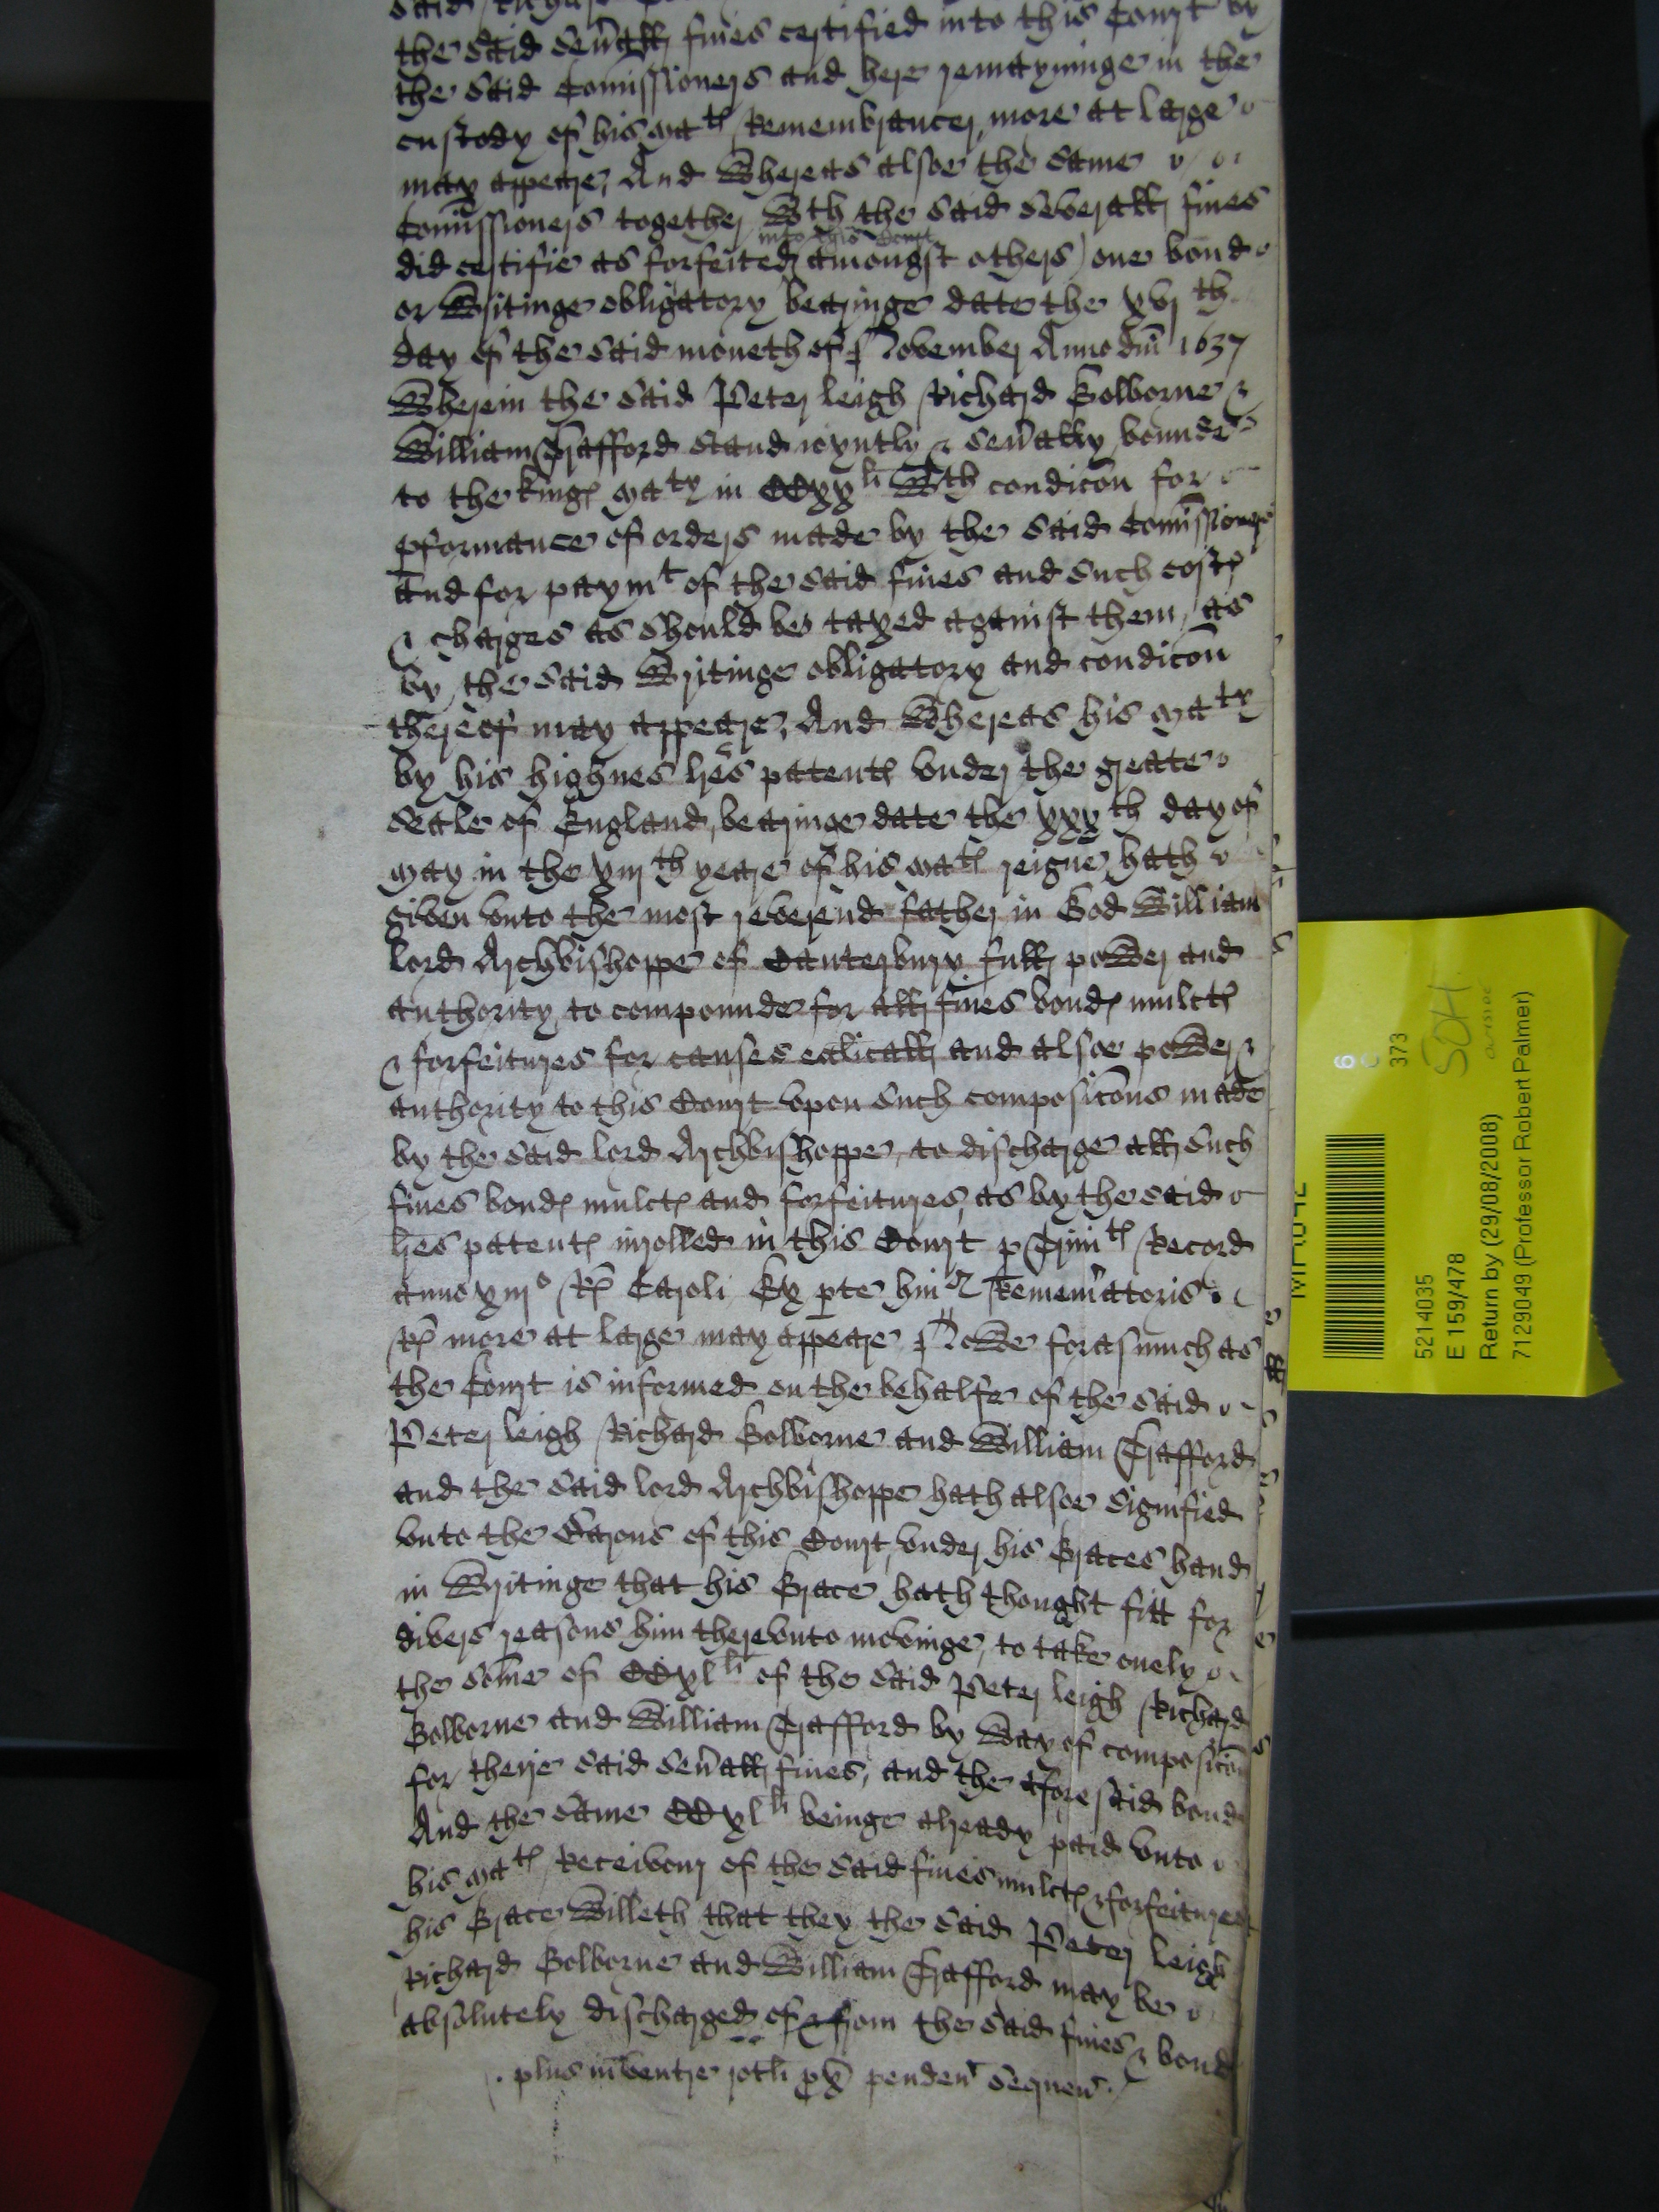 the said sev'all fines certified into this Court by
the said Comissioners and here remayninge in the
custody of his Ma:tes Remembrancer, more at large
may appeare, And Whereas alsoe the same
Comissioners together Wth the said severall fines
into this Court
did certifie as forfeited (amongst others) one bond
or Writinge obligatory bearinge date the xvjth
day of the said moneth of November Anno dm̃ 1637
Wherein the said Peter Leigh Richard Golborne &
William Trafford stand ioyntly & sev'ally bounde
to the kinges Maty in CCxxli Wth condic̃on for
pformance of orders made by the said Comissioners
And for paymt of the said fines and such costes
& charges as should be taxed against them, as
by the said Writinge obligatory and condic̃on
thereof may appeare, And Whereas his Maty
by his highnes l̃res patentes under the greate
Seale of England, bearinge date the xxxth day of
May in the xiijth yeare of his Mates reigne, hath
given vnto the most reverend father in God William
lord Archbishoppe of Canterbury full power and
authority to compounde for all fines bondes mulctes
& forfeitures for causes eccl̃icall and alsoe power &
authority to this Court vpon such composic̃ons made
by the said lord Archbishoppe, to discharge all such
fines bondes mulctes and forfeitures, as by the said
l̃res patentes inrolled in this Court
anno xiijo R̃es Caroli Ex pte hui9 Rememratoris
R̃es more at large may appeare Nowe forasmuch as
the Court is informed on the behalfe of the said
Peter Leigh Richard Golborne and William Trafford
and the said lord Archbishoppe hath alsoe signified
vnto the Barons of this Court, vnder his Graces hand
in Writinge that his Grace hath thought fitt for
divers reasons him therevnto movinge, to take onely
the som̃e of CCxlli of the said Peter Leigh Richard
Golborne and William Trafford by Way of composic̃on
for theire said sev'all fines, and the aforesaid bond
And the same CCxlli beinge already paid vnto
his Mates Receivour of the said fines mulctes & forfeitures
his Grace Willeth that they the said Peter Leigh
Richard Golborne and William Trafford may be
absolutely discharged of & from the said fines & bond
plus inventre rotli px̃ penden' sequen'
6
C
373
SOH
5214035
E 159/478
Return by (29/08/2008)
7129049 (Professor Robert Palmer)